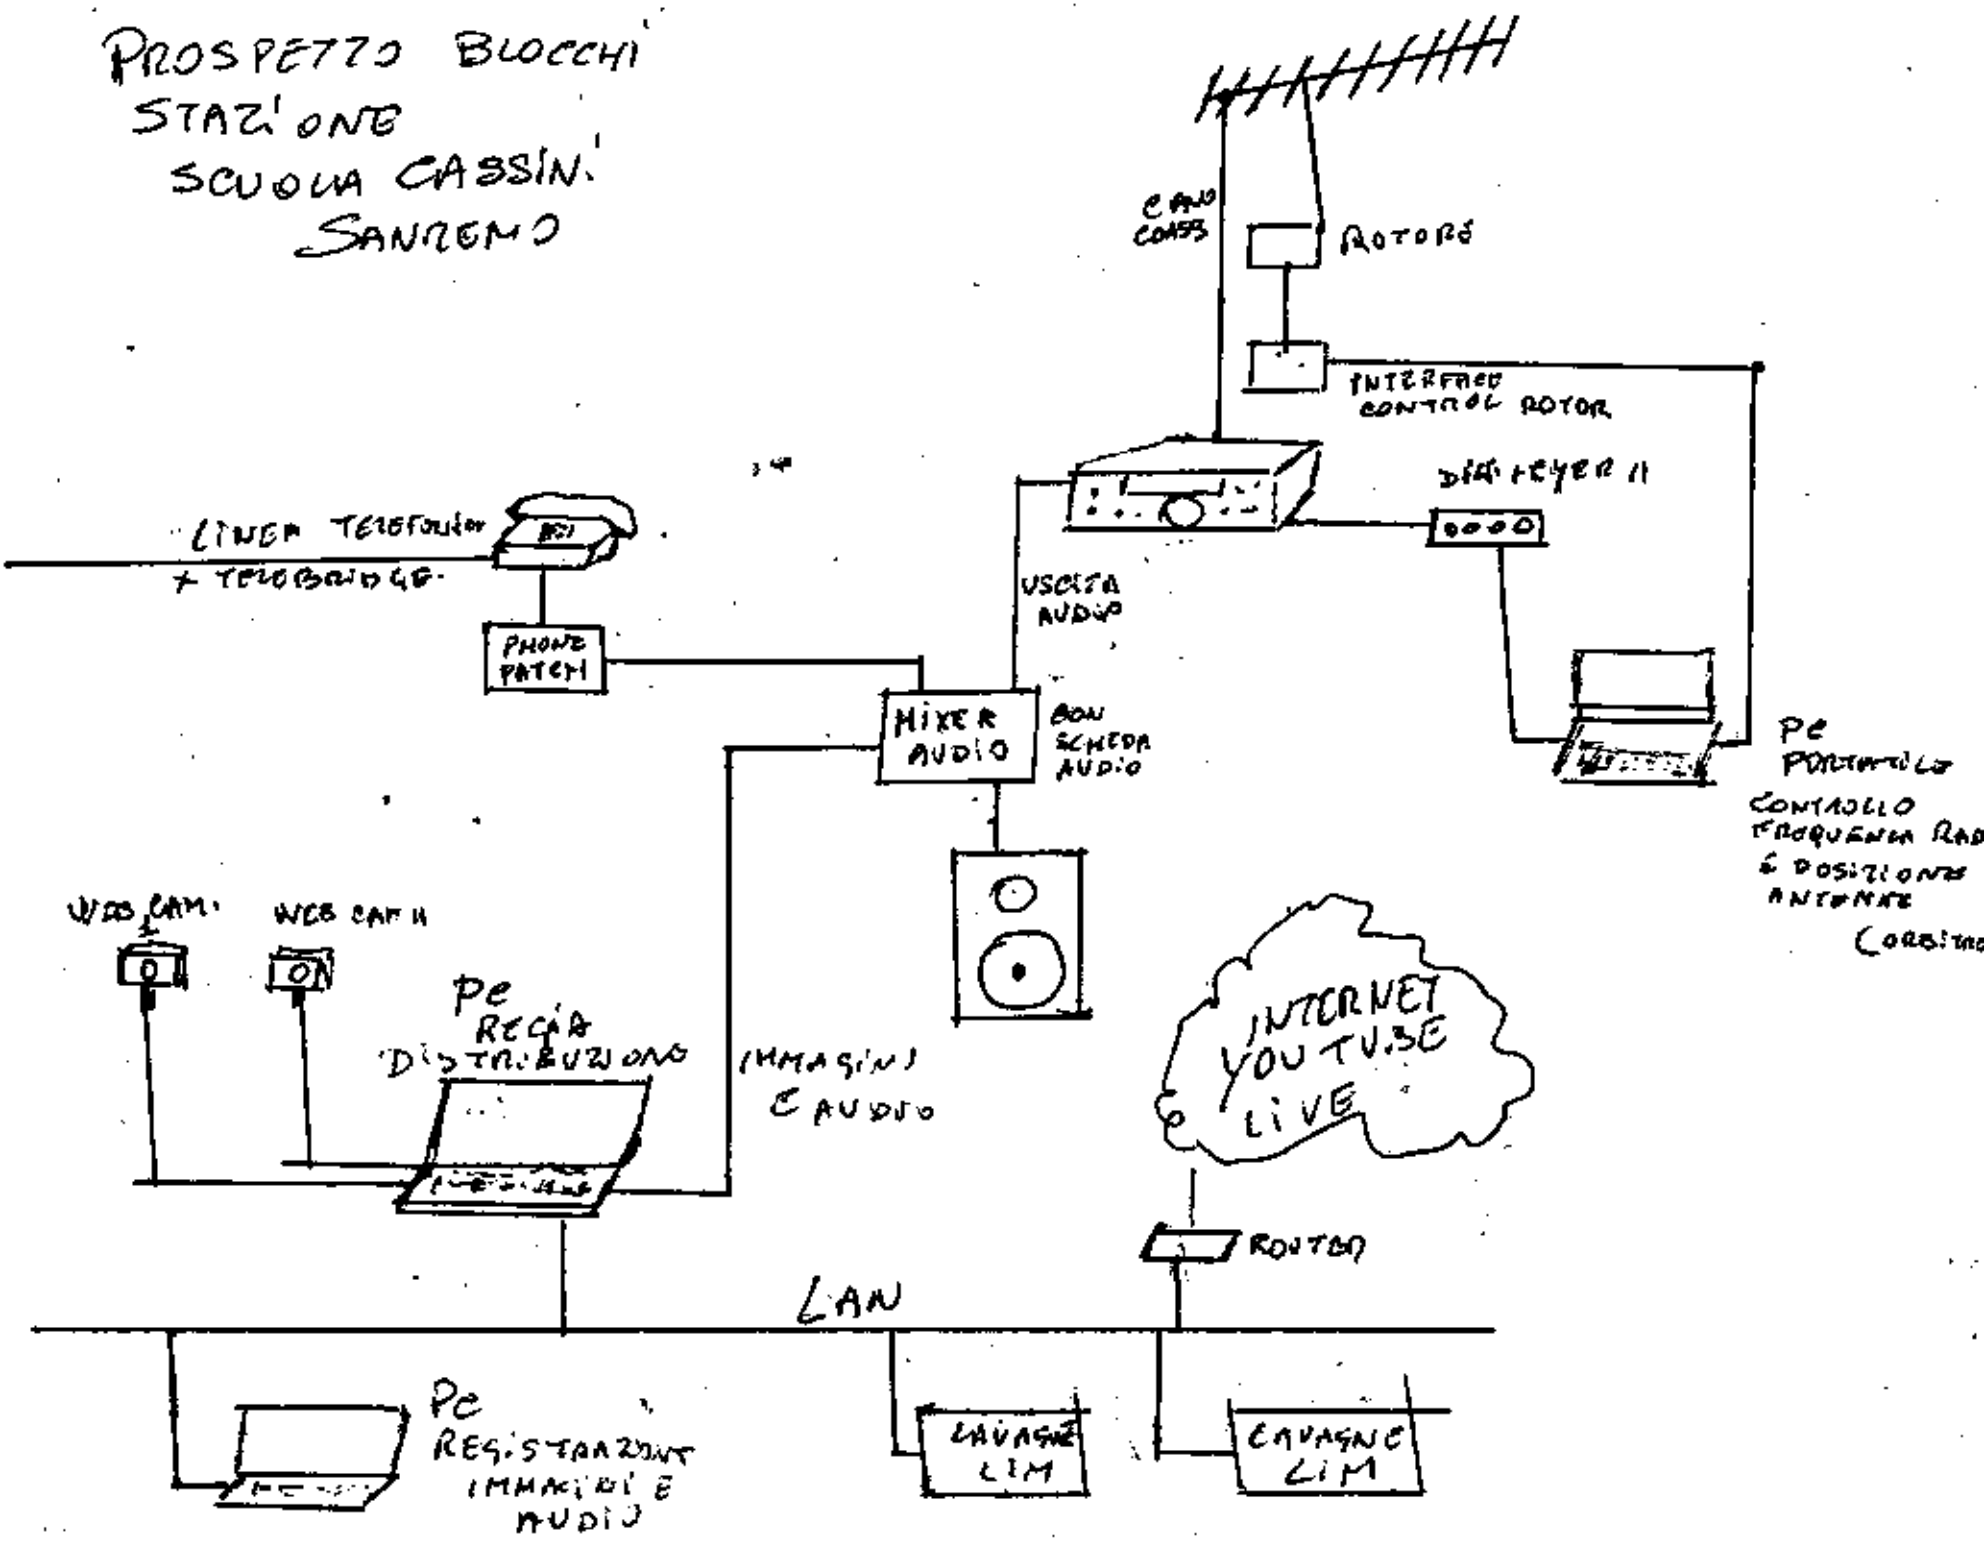 PROSPETTO BLOCCHI
STAZIONE
SCUOLA CASSINI
SANREMO
CAVO
COASS
ROTORE
INTERFACE
CONTROL ROTOR
LINEA
+ TELEBRIDGE
PHONE
PATCH
USCITA
AUDIO
MIXER
AUDIO
CON
SCHEDA
AUDIO
PC
PORTATILE
CONTROLLO
FREQUENZA RAD
E POSIZIONE
ANTENNE
WEB CAM
WEB CAM II
PC
REGIA
DISTRIBUZIONE
IMMAGINI
E AUDIO
INTERNET
YOUTUBE
LIVE
ROUTER
LAN
PC
REGISTRAZIONE
IMMAGINI E
AUDIO
LAVAGNE
LIM
LAVAGNE
LIM